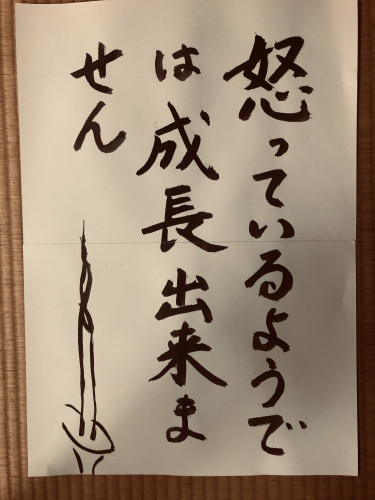 怒っているようで
は成長出来ま
せん